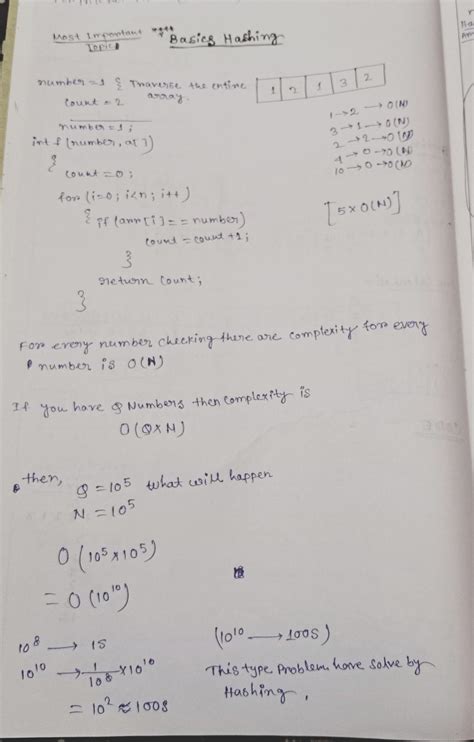 Most Important Topic
Basics Hashing
number = 1 { Traverse the entire
count = 2 array.
1 2 1 3 2
1 → 2 → O(N)
3 → 1 → O(N)
2 → 2 → O(N)
4 → 0 → O(N)
10 → 0 → O(N)
[5 × O(N)]
number = 1;
int f (number, a[])
{
count = 0;
for (i=0; i<n; i++)
{ if (arr[i] == number)
count = count +1;
}
return count;
}
For every number checking there are complexity for every
number is O(N)
If you have Q Numbers then complexity is
O(Q×N)
then,
Q = 10⁵ what will happen
N = 10⁵
O (10⁵ × 10⁵)
= O (10¹⁰)
10⁸ → 1S
10¹⁰ → 1/10⁸ × 10¹⁰
= 10² ≈ 100S
(10¹⁰ → 100S)
This type Problem have solve by
Hashing,